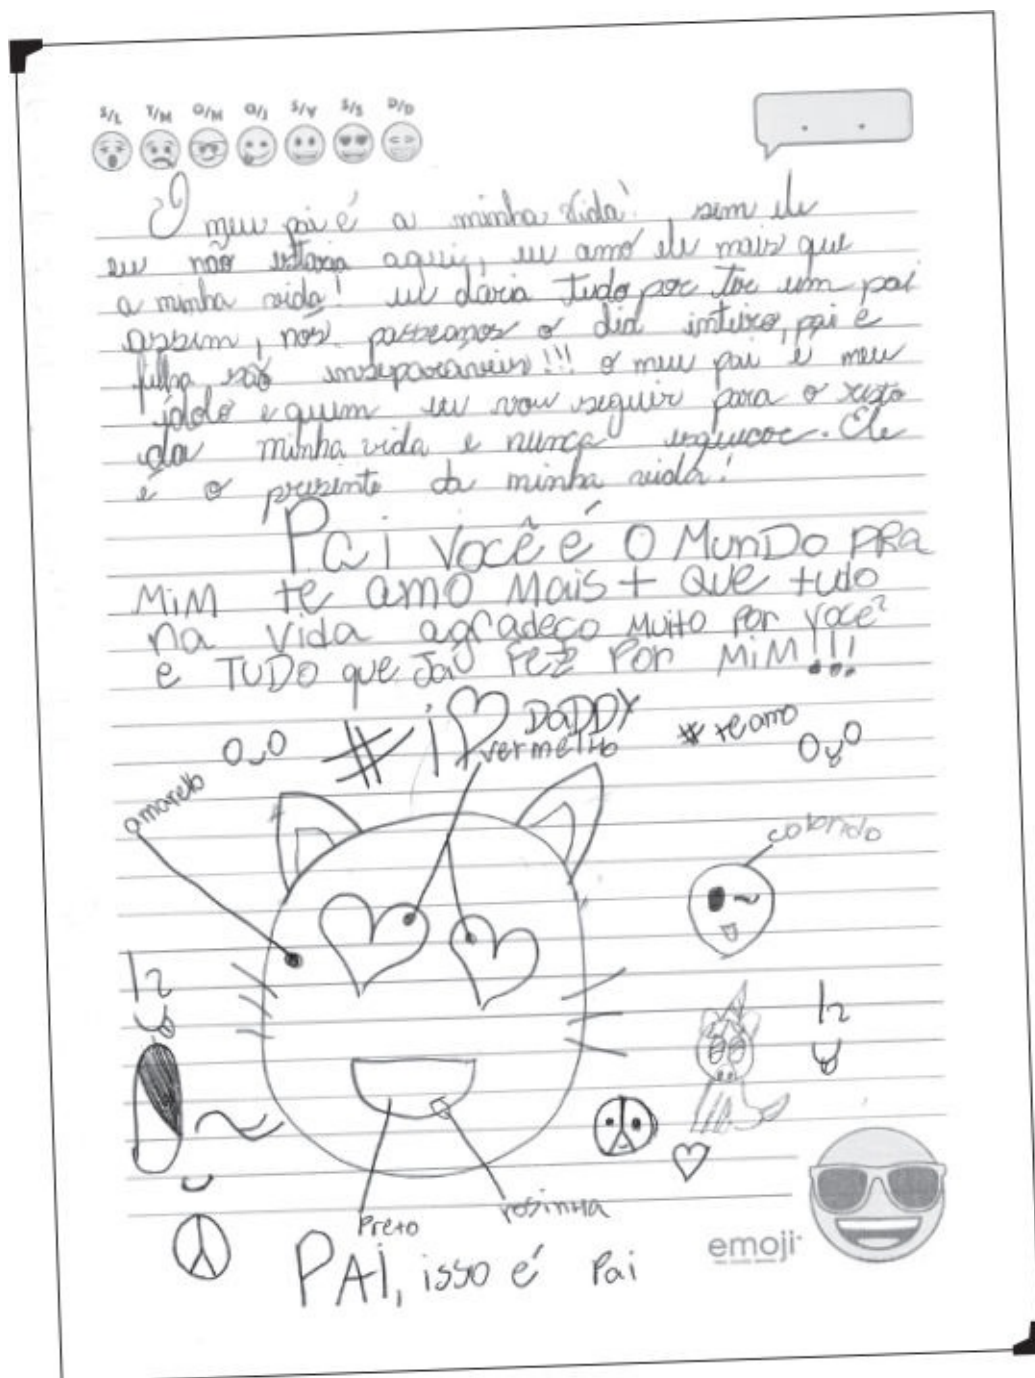 S/L T/M Q/M Q/J S/A S/S D/D
O meu pai é a minha vida!, sem ele
eu não estaria aqui, eu amo ele mais que
a minha vida! eu daria tudo por ter um pai
assim, nós passeamos o dia inteiro, pai e
filha são inseparáveis!!! o meu pai é meu
ídolo e quem eu vou seguir para o resto
da minha vida e nunca esquecer. Ele
é o presente da minha vida!
Pai você é O MunDo PRA
MiM te amo Mais + que tudo
na vida agradeço Muito Por você
e TUDO que Já Fez Por MiM!!!
# i ♡ DaDDY
#te amo
vermelho
amarelo
colorido
Preto
rosinha
emoji
PAI, isso é Pai